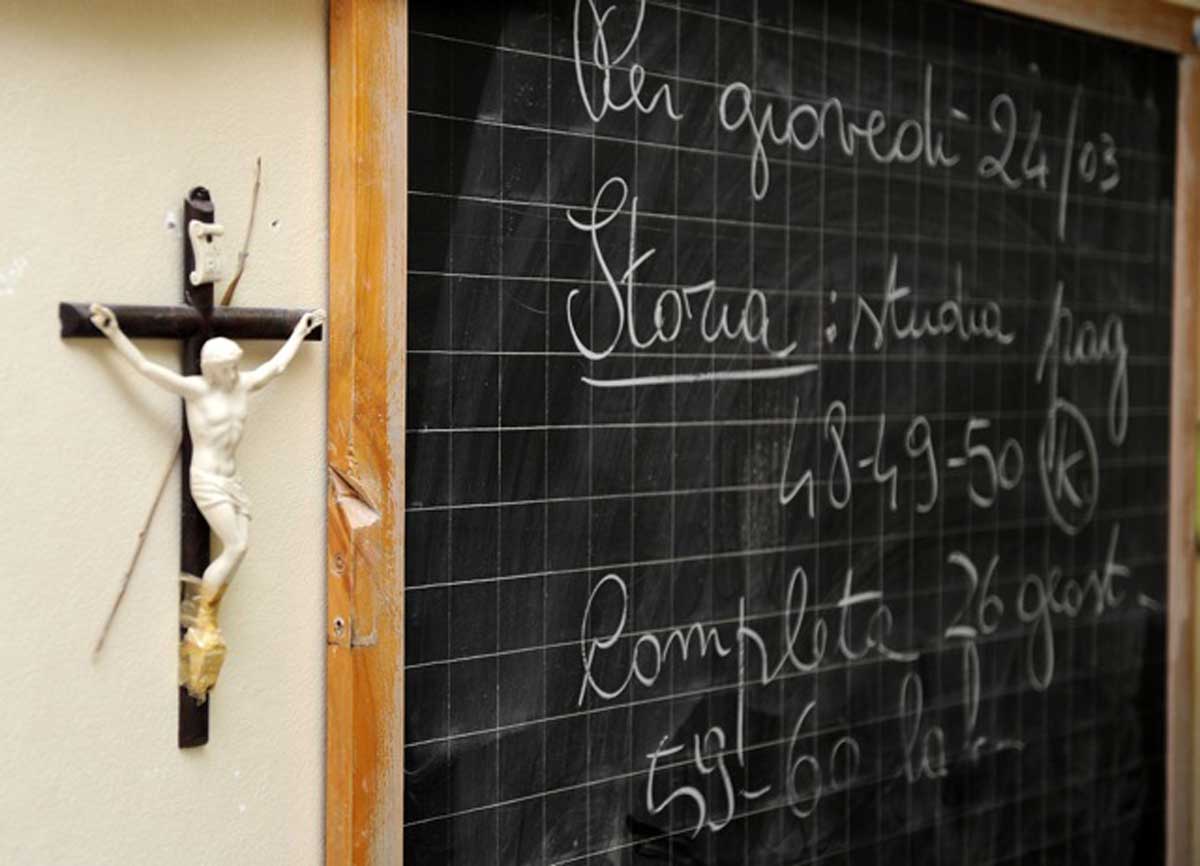 Per giovedì 24/03
Storia : studia pag
48-49-50 K
Completa 26
59-60